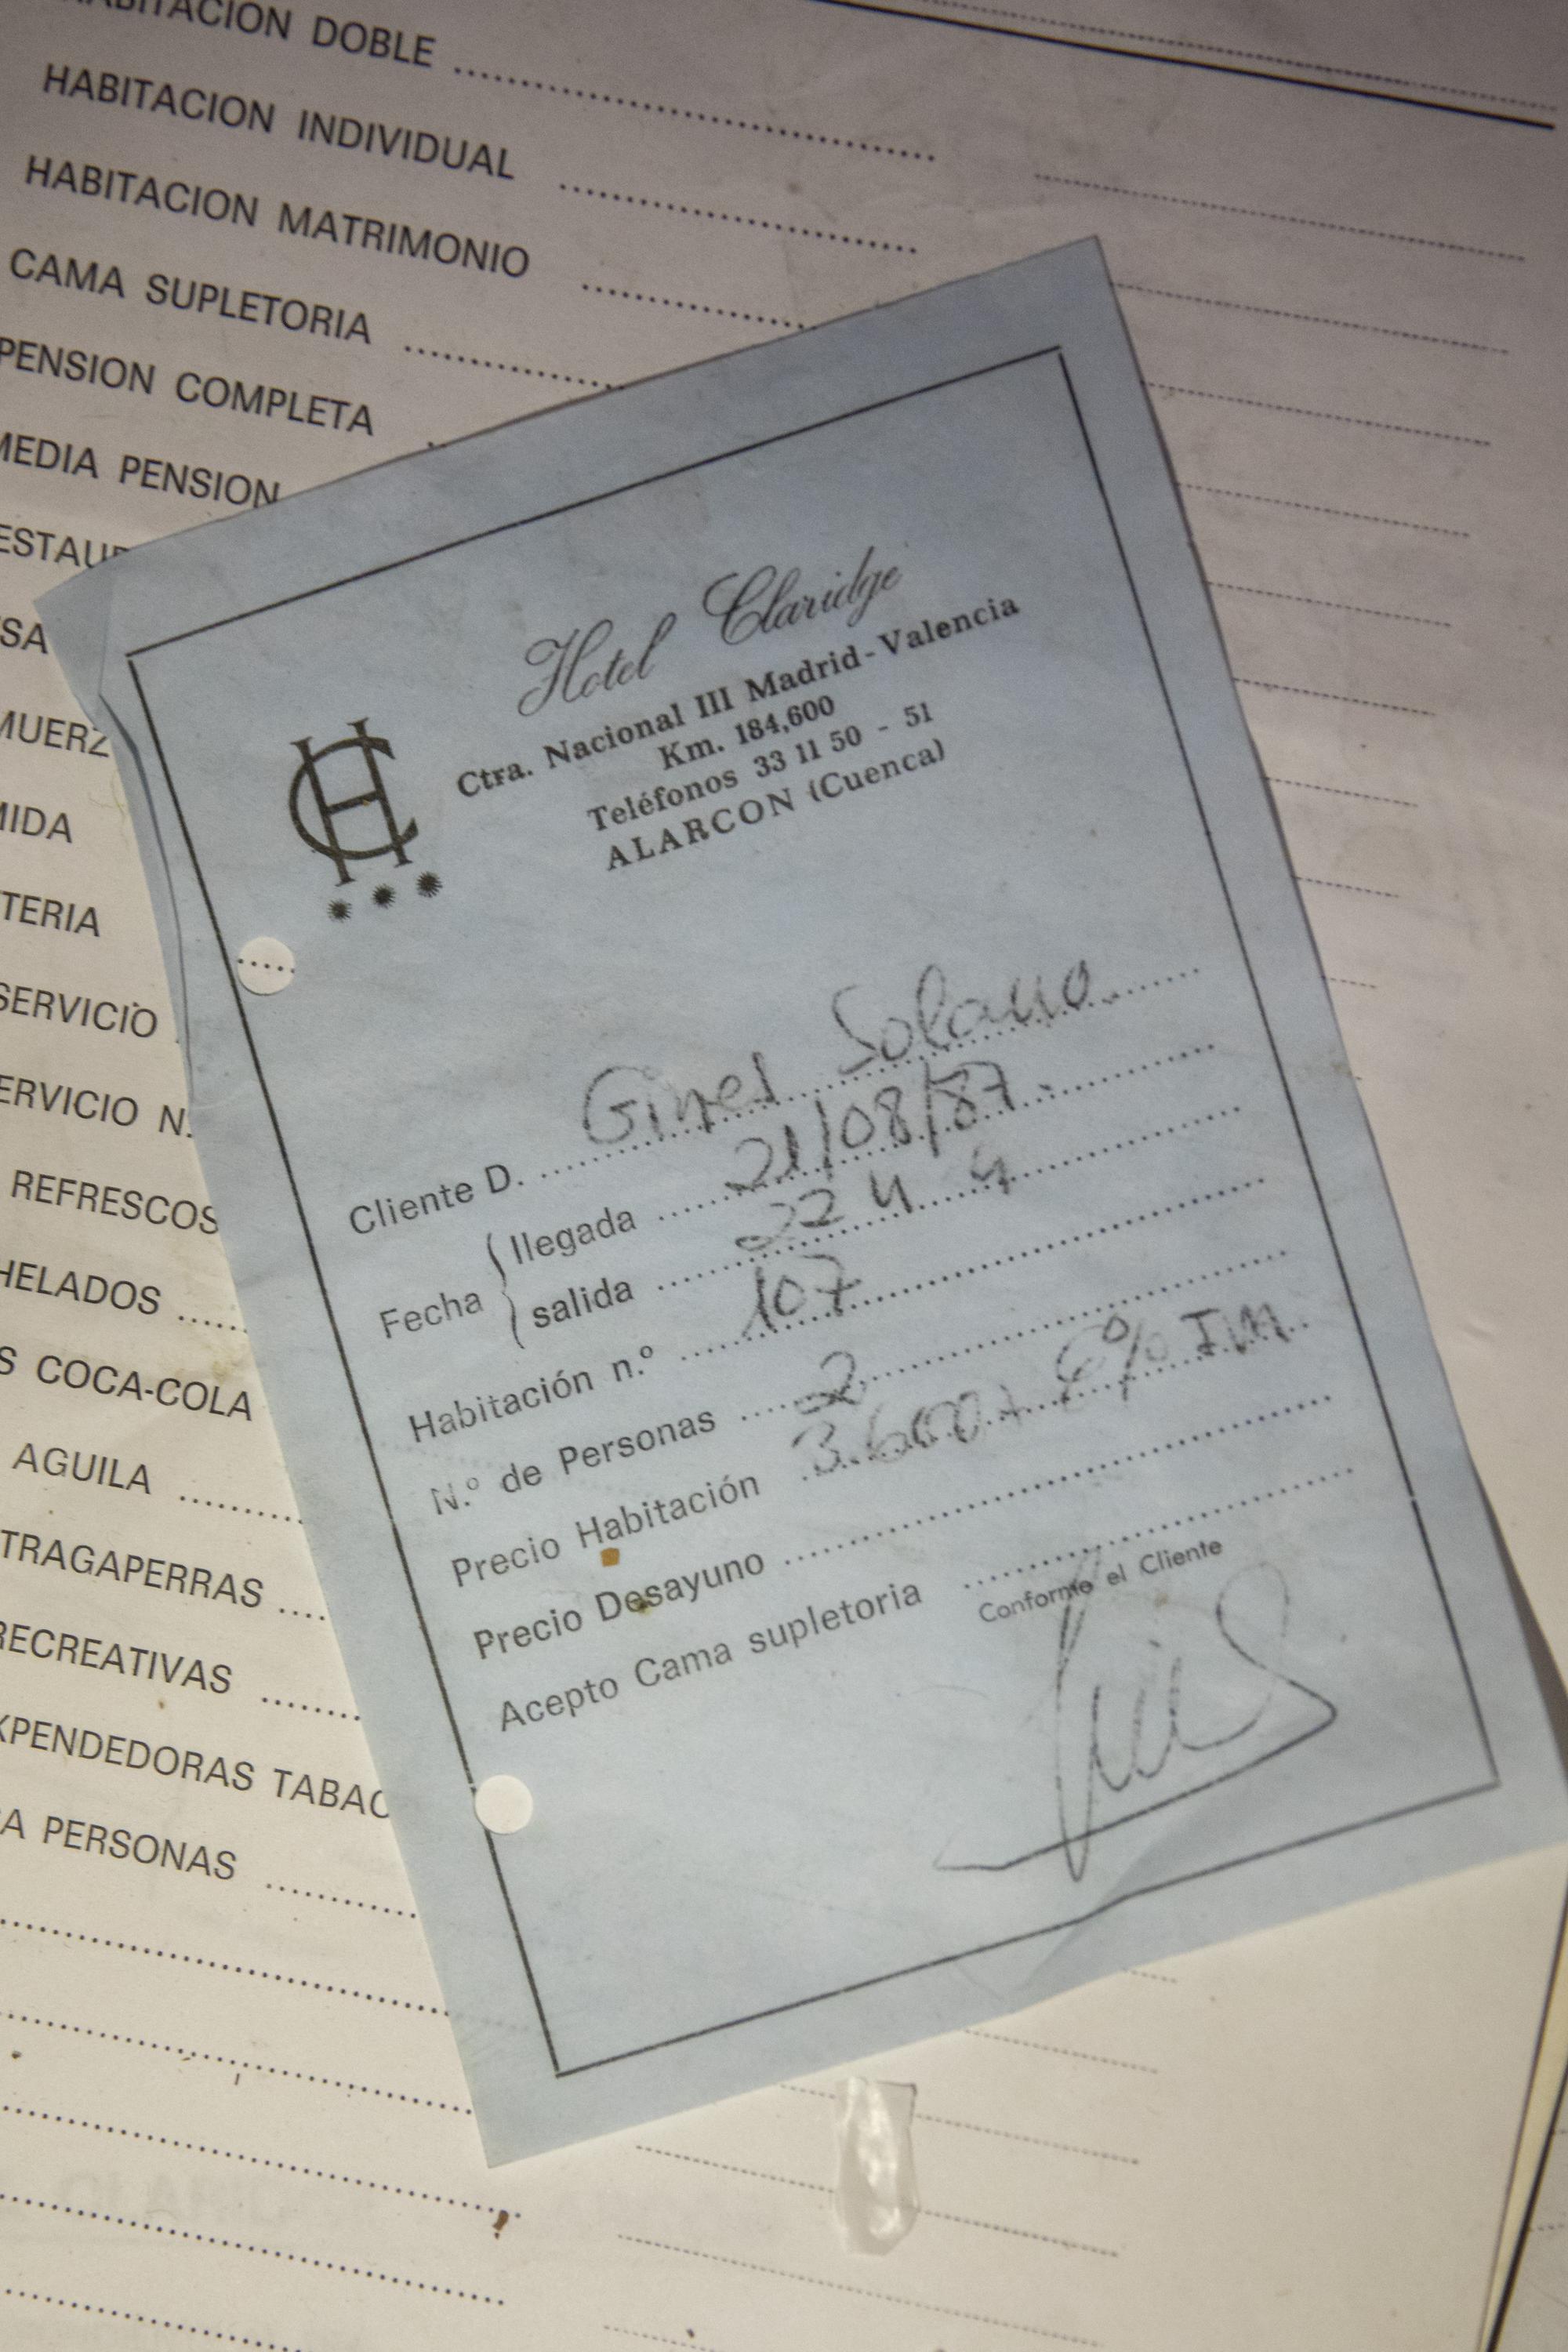 HABITACION DOBLE
HABITACION INDIVIDUAL
HABITACION MATRIMONIO
CAMA SUPLETORIA
PENSION COMPLETA
MEDIA PENSION
ESTAU
SA
MUERZ
MIDA
TERIA
SERVICIO
ERVICIO N.
REFRESCOS
HELADOS
S COCA-COLA
AGUILA
TRAGAPERRAS
RECREATIVAS
XPENDEDORAS TABAC
A PERSONAS
Hotel Claridge
Ctra. Nacional III Madrid-Valencia
Km. 184,600
Teléfonos 33 11 50 - 51
ALARCON (Cuenca)
CH
Cliente D. Gines Solano
Fecha llegada 21/08/87
salida 22 " "
Habitación n.º 107
N.º de Personas 2
Precio Habitación 3.600 + 6% IM
Precio Desayuno
Acepto Cama supletoria
Conforme el Cliente